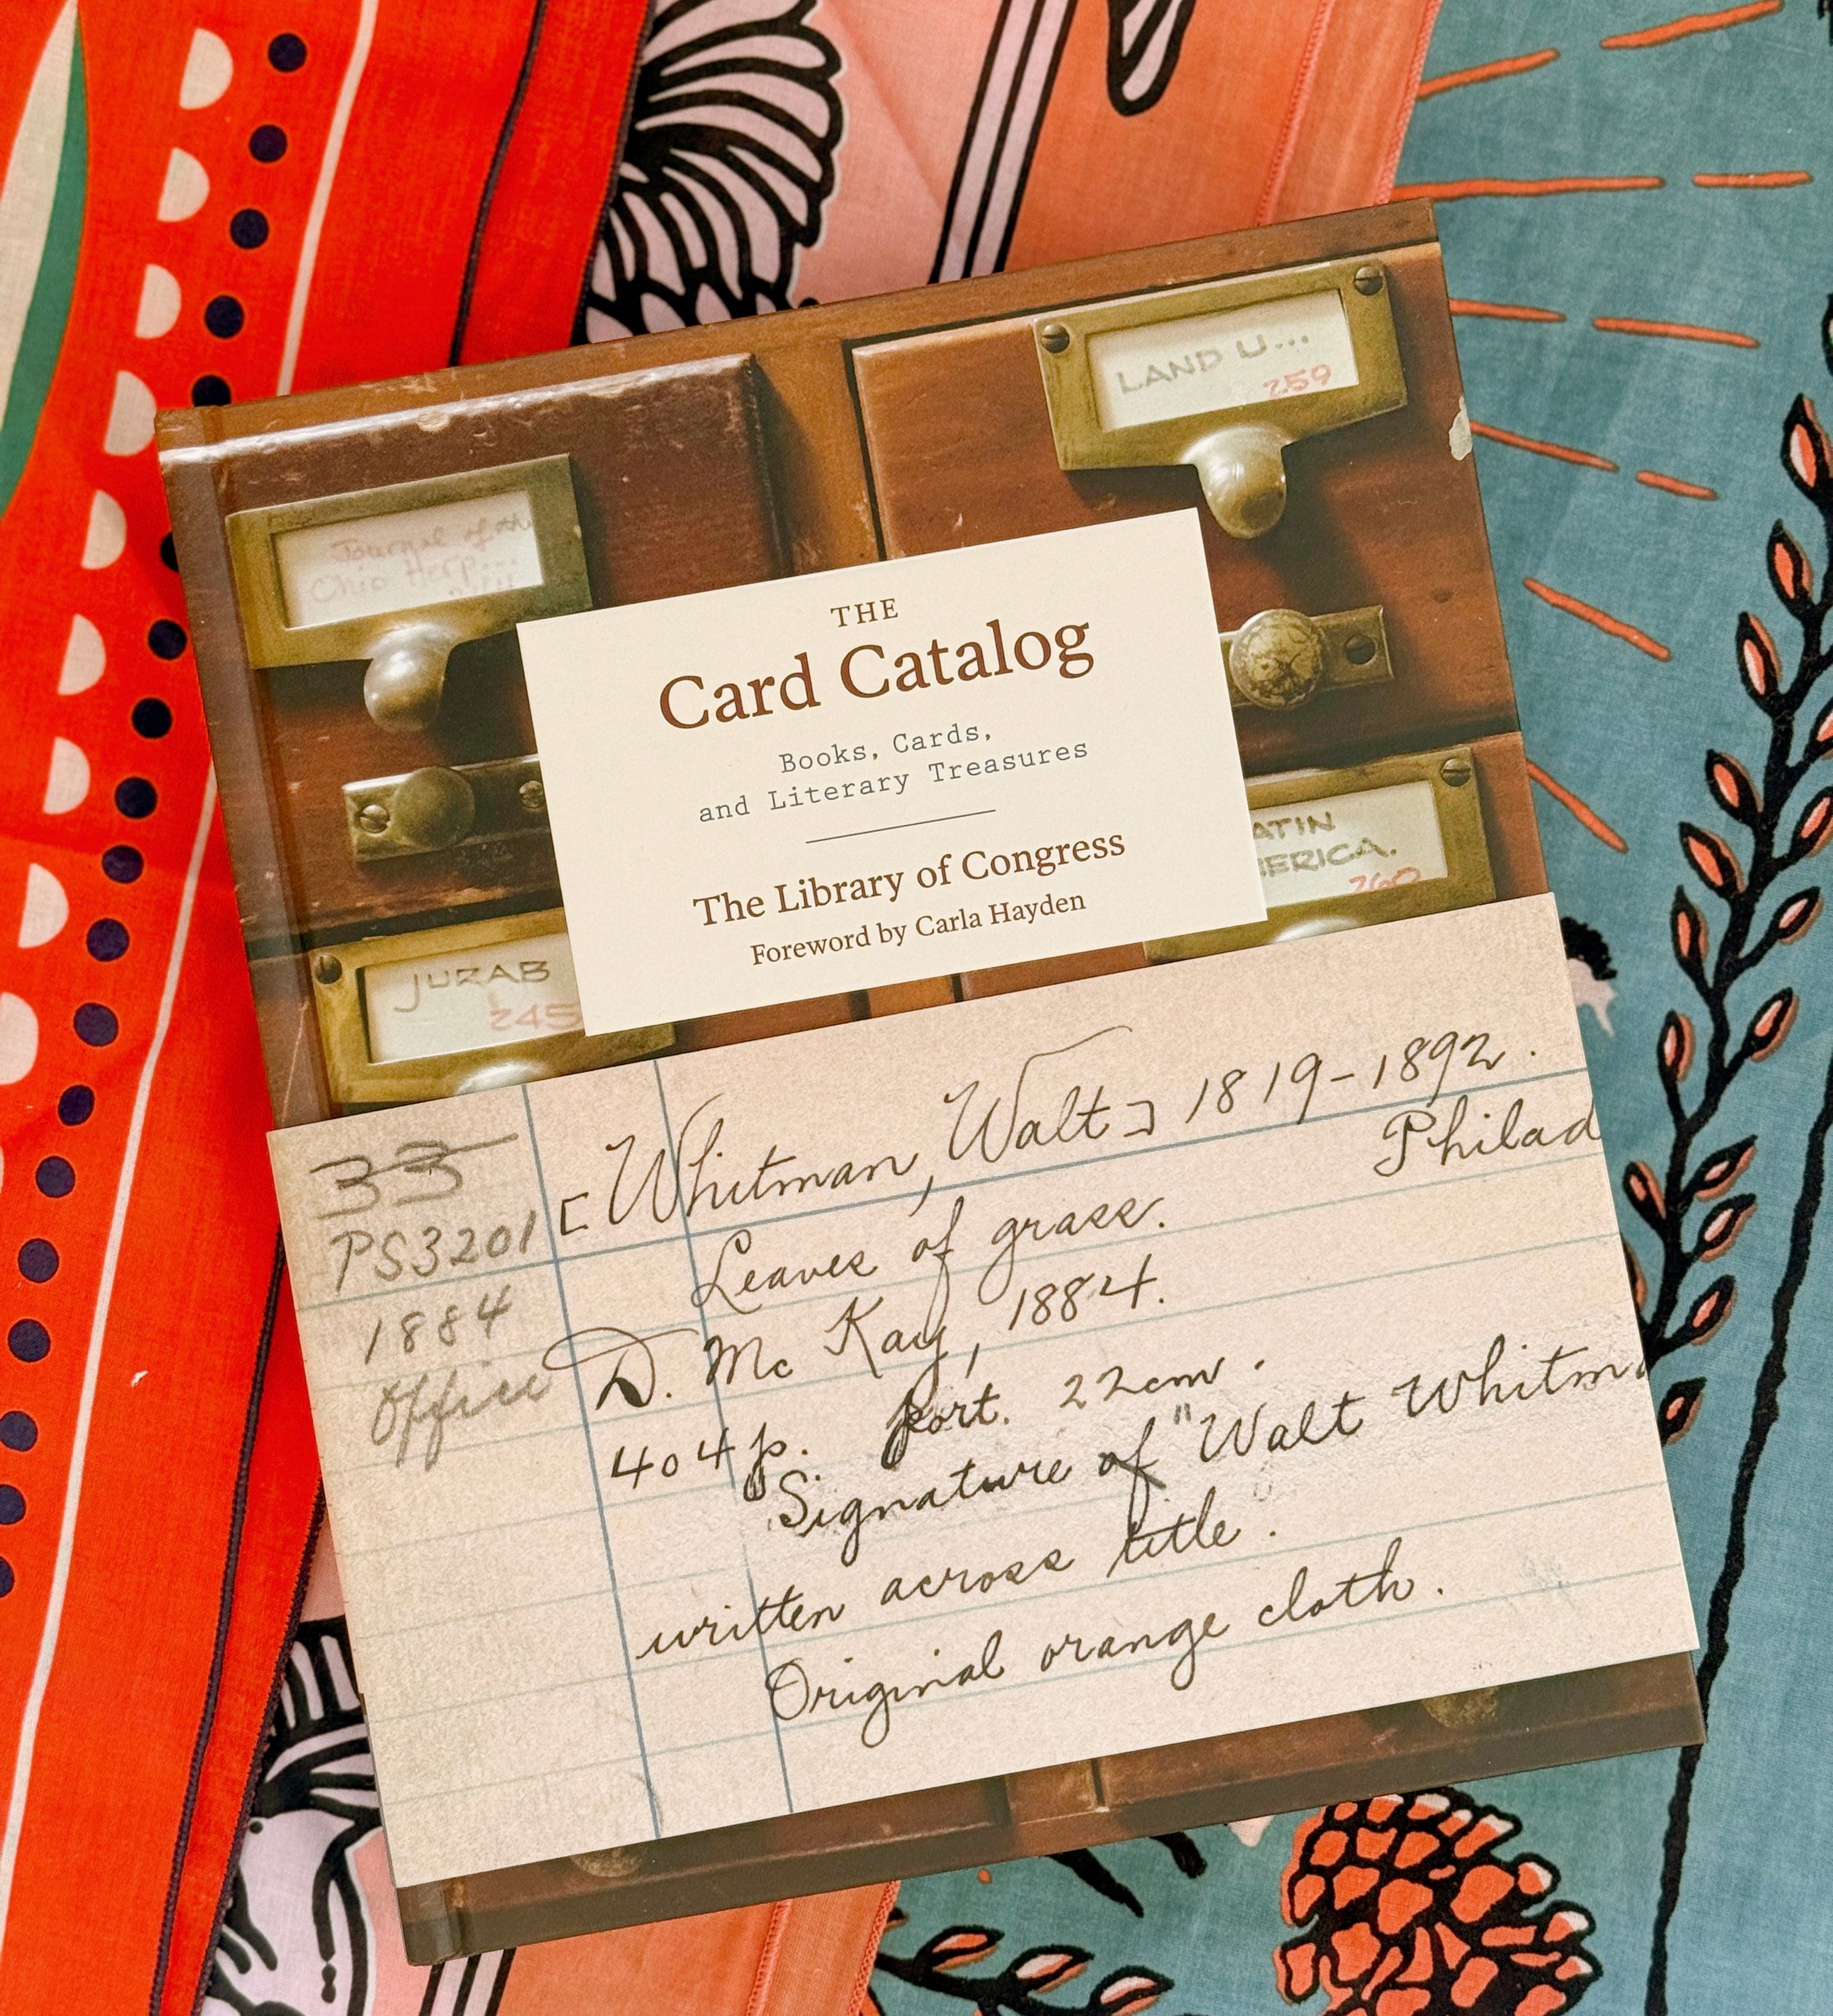 LAND U...
259
Journal of the
Ohio Herp...
THE
Card Catalog
Books, Cards,
and Literary Treasures
The Library of Congress
Foreword by Carla Hayden
ATIN
ERICA.
260
JUZAB
245
33
[Whitman, Walt] 1819-1892.
PS3201
Leaves of grass. Philad
1884
D. Mc Kay, 1884.
Office
404 p. port. 22cm.
Signature of "Walt Whitm
written across title".
Original orange cloth.